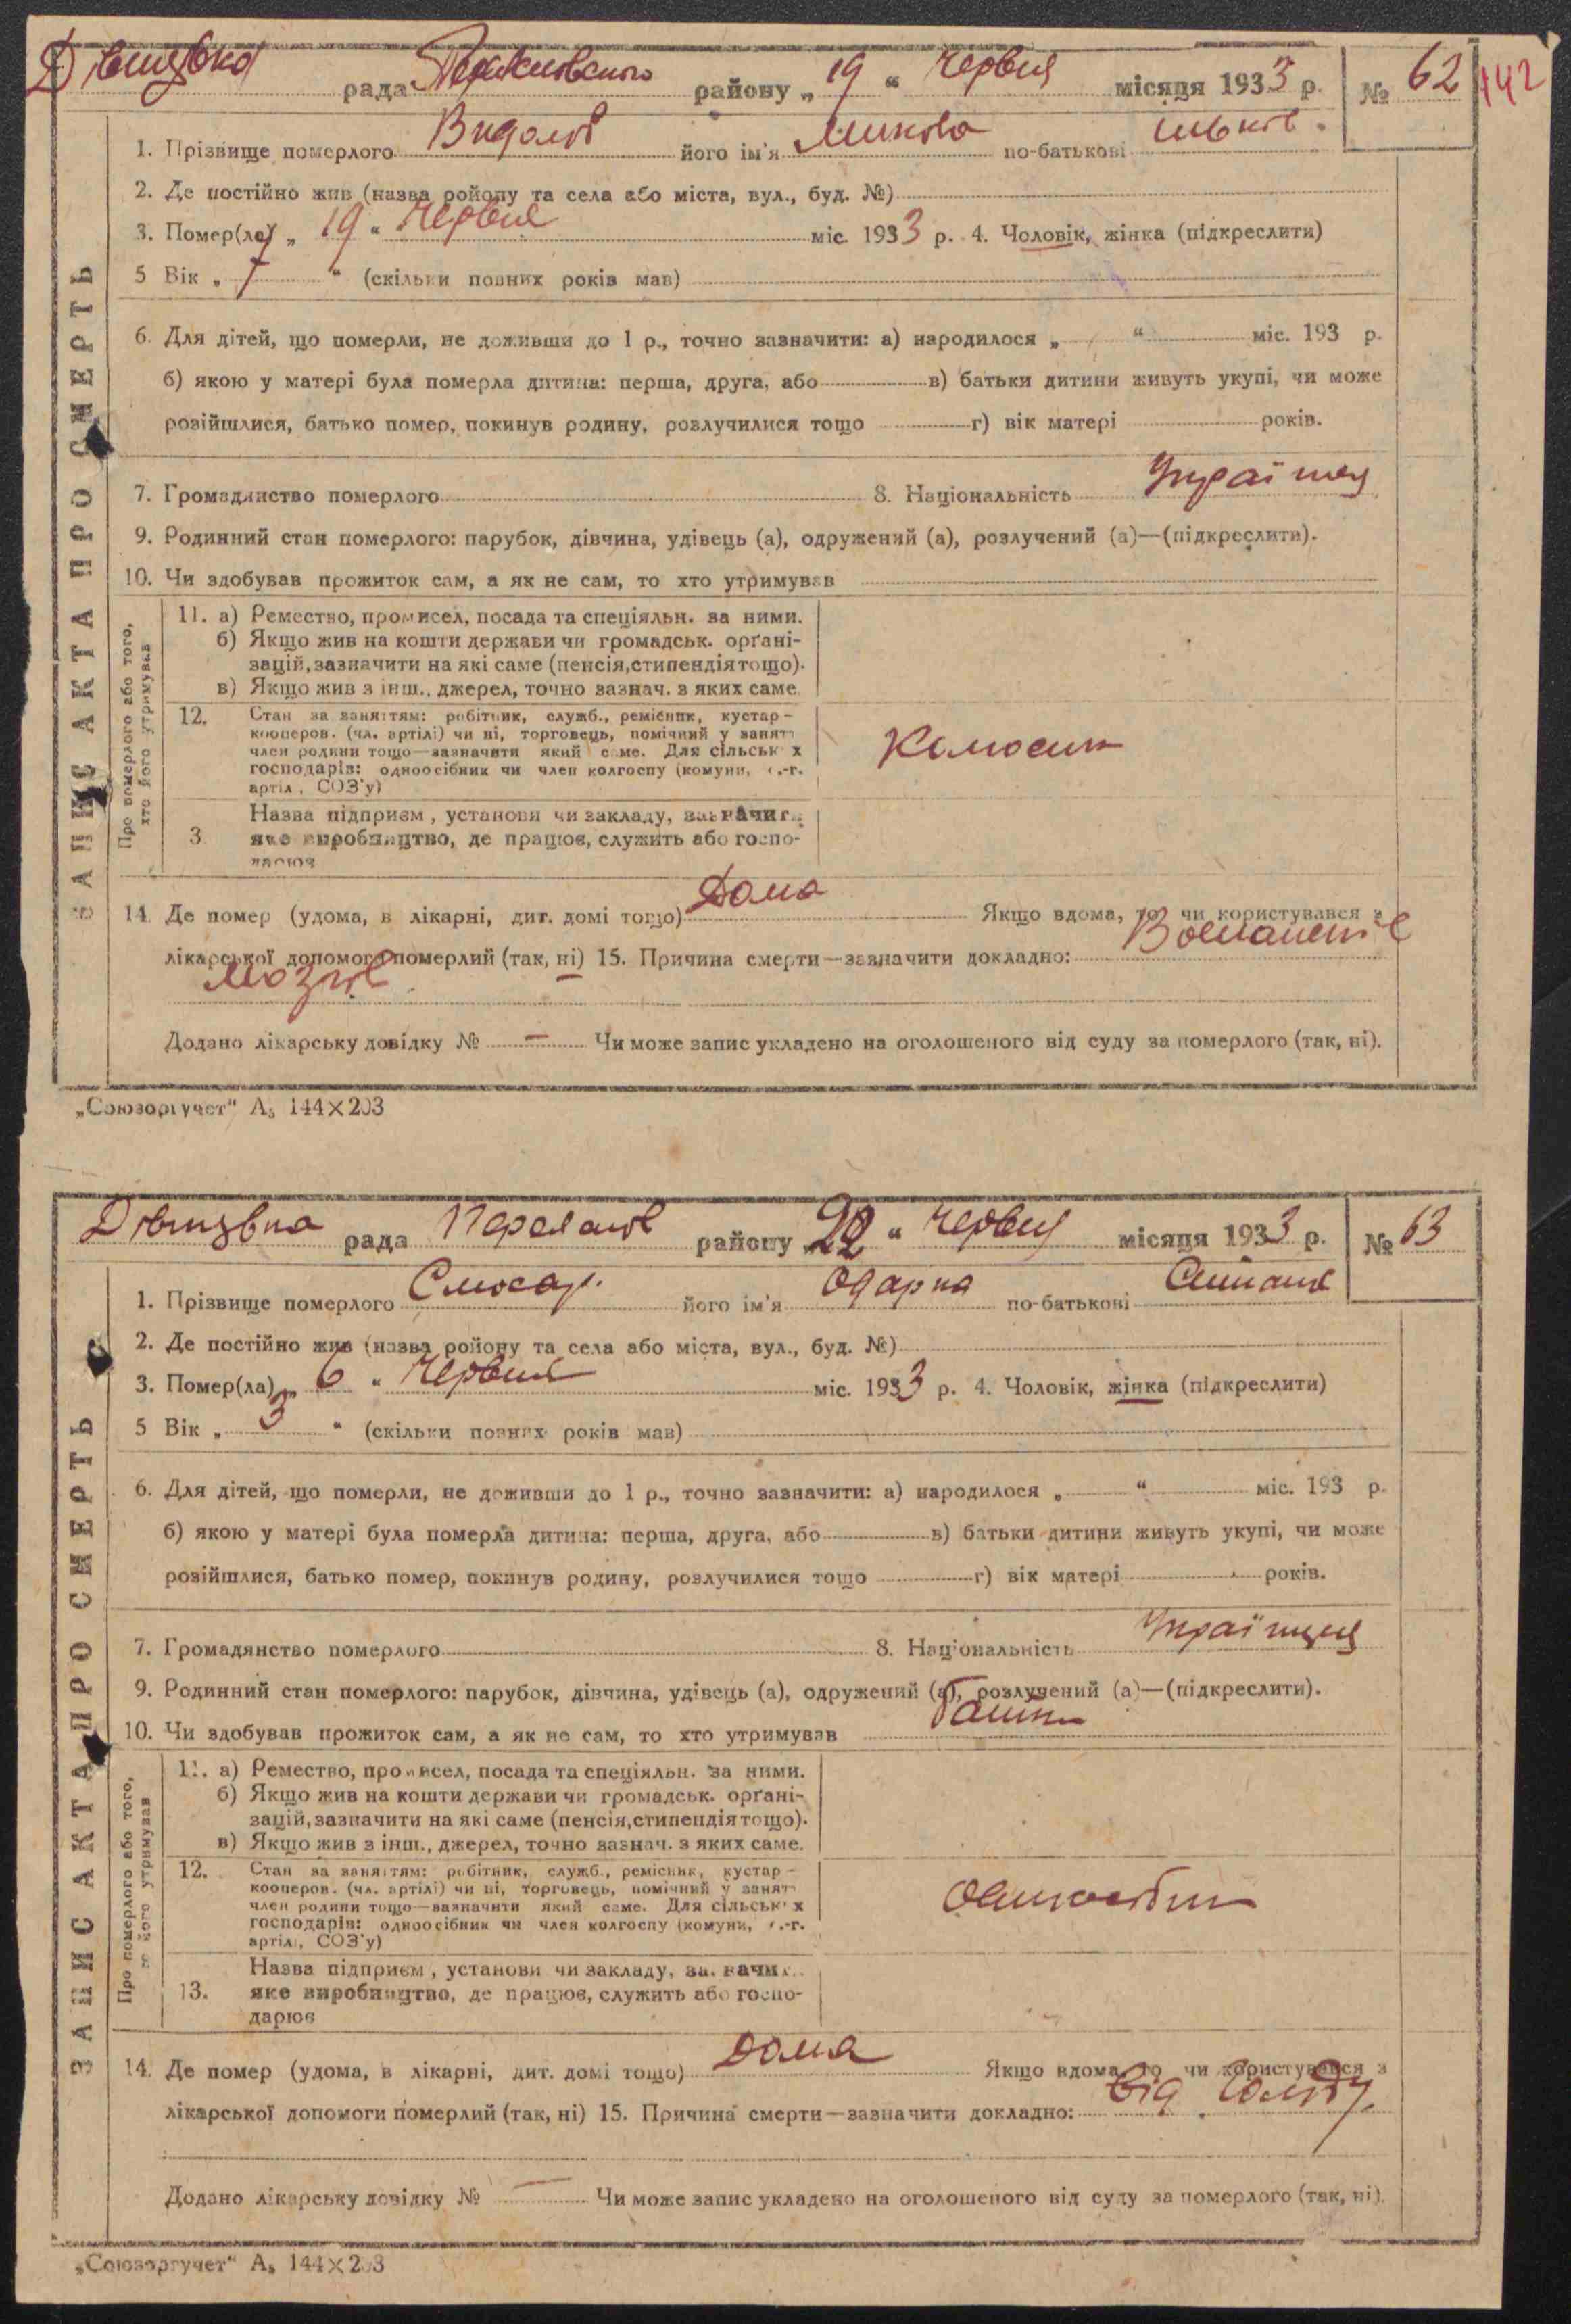 Дівицька рада Переяславського району „ 19 “ Червня місяця 1933 р. № 62 142
1. Прізвище померлого його ім'я Микола по-батькові
2. Де постійно жив (назва ройону та села або міста, вул., буд. №)
3. Помер(ла) „ 19 “ Червня міс. 1933 р. 4. Чоловік, жінка (підкреслити)
5 Вік „ 7 “ (скільки повних років мав)
6. Для дітей, що померли, не доживши до 1 р., точно зазначити: а) народилося „ “ міс. 193 р.
б) якою у матері була померла дитина: перша, друга, або в) батьки дитини живуть укупі, чи може
розійшлися, батько помер, покинув родину, розлучилися тощо г) вік матері років.
7. Громадянство померлого 8. Національність
9. Родинний стан померлого: парубок, дівчина, удівець (а), одружений (а), розлучений (а)—(підкреслити).
10. Чи здобував прожиток сам, а як не сам, то хто утримував
ЗАПИС АКТА ПРО СМЕРТЬ
Про померлого або того,
хто його утримував
11. а) Ремество, промисел, посада та спеціяльн. за ними.
б) Якщо жив на кошти держави чи громадськ. орґані-
зацій, зазначити на які саме (пенсія, стипендія тощо).
в) Якщо жив з інш., джерел, точно зазнач. з яких саме.
12. Стан за заняттям: робітник, служб., ремісник, кустар-
кооперов. (чл. артілі) чи ні, торговець, помічний у занятт
член родини тощо—зазначити який саме. Для сільськ х
господарів: одноосібник чи член колгоспу (комуни, с.-г.
артіл, СОЗ'у)
3 Назва підприєм, установи чи закладу, зазначити
яке виробництво, де працює, служить або госпо-
дарює
14. Де помер (удома, в лікарні, дит. домі тощо) Дома Якщо вдома, то чи користувався з
лікарської допомоги померлий (так, ні) 15. Причина смерти—зазначити докладно:
мозгів
Додано лікарську довідку № — Чи може запис укладено на оголошеного від суду за померлого (так, ні).
„Союзоргучет“ А₅ 144×203
Дівицька рада Переяслав району „ 22 “ Червня місяця 1933 р. № 63
1. Прізвище померлого Слюсар його ім'я Одарка по-батькові
2. Де постійно жив (назва ройону та села або міста, вул., буд. №)
3. Помер(ла) „ 6 “ Червня міс. 1933 р. 4. Чоловік, жінка (підкреслити)
5 Вік „ 3 “ (скільки повних років мав)
6. Для дітей, що померли, не доживши до 1 р., точно зазначити: а) народилося „ “ міс. 193 р.
б) якою у матері була померла дитина: перша, друга, або в) батьки дитини живуть укупі, чи може
розійшлися, батько помер, покинув родину, розлучилися тощо г) вік матері років.
7. Громадянство померлого 8. Національність Українця
9. Родинний стан померлого: парубок, дівчина, удівець (а), одружений (а), розлучений (а)—(підкреслити).
10. Чи здобував прожиток сам, а як не сам, то хто утримував
ЗАПИС АКТА ПРО СМЕРТЬ
Про померлого або того,
хто його утримував
11. а) Ремество, промисел, посада та спеціяльн. за ними.
б) Якщо жив на кошти держави чи громадськ. орґані-
зацій, зазначити на які саме (пенсія, стипендія тощо).
в) Якщо жив з інш., джерел, точно зазнач. з яких саме.
12. Стан за заняттям: робітник, служб., ремісник, кустар-
кооперов. (чл. артілі) чи ні, торговець, помічний у занятт
член родини тощо—зазначити який саме. Для сільськ х
господарів: одноосібник чи член колгоспу (комуни, с.-г.
артіл, СОЗ'у)
13. Назва підприєм, установи чи закладу, зазначи
яке виробництво, де працює, служить або госпо-
дарює
14. Де помер (удома, в лікарні, дит. домі тощо) Дома Якщо вдома, то чи користувався з
лікарської допомоги померлий (так, ні) 15. Причина смерти—зазначити докладно: Від голоду
Додано лікарську довідку № — Чи може запис укладено на оголошеного від суду за померлого (так, ні).
„Союзоргучет“ А₅ 144×203